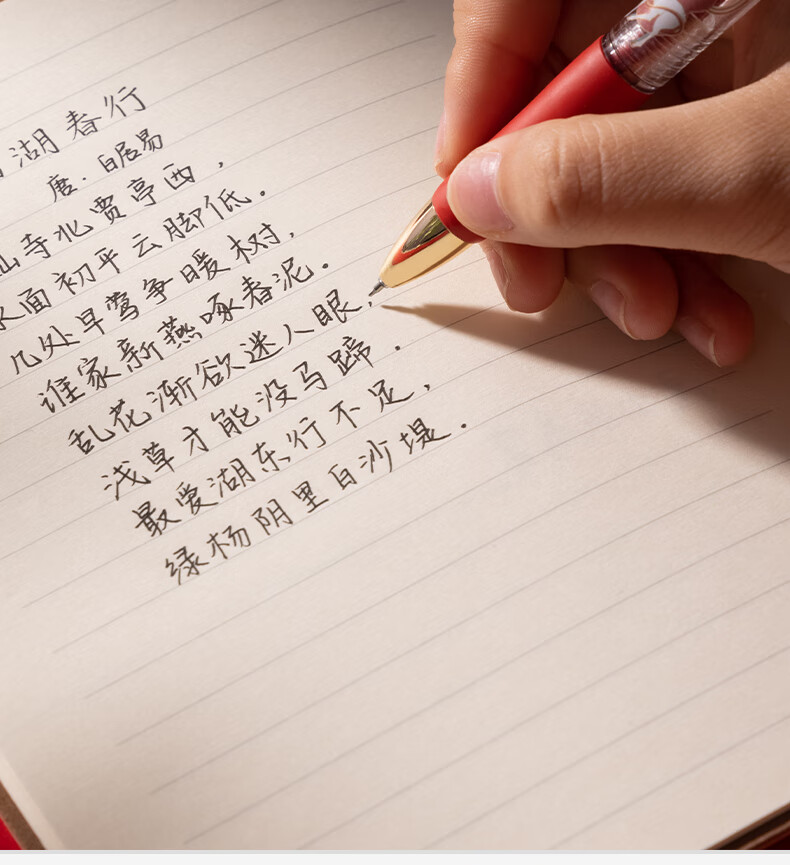 湖春行
唐·白居易
山寺北贾亭西，
水面初平云脚低。
几处早莺争暖树，
谁家新燕啄春泥。
乱花渐欲迷人眼，
浅草才能没马蹄．
最爱湖东行不足，
绿杨阴里白沙堤．